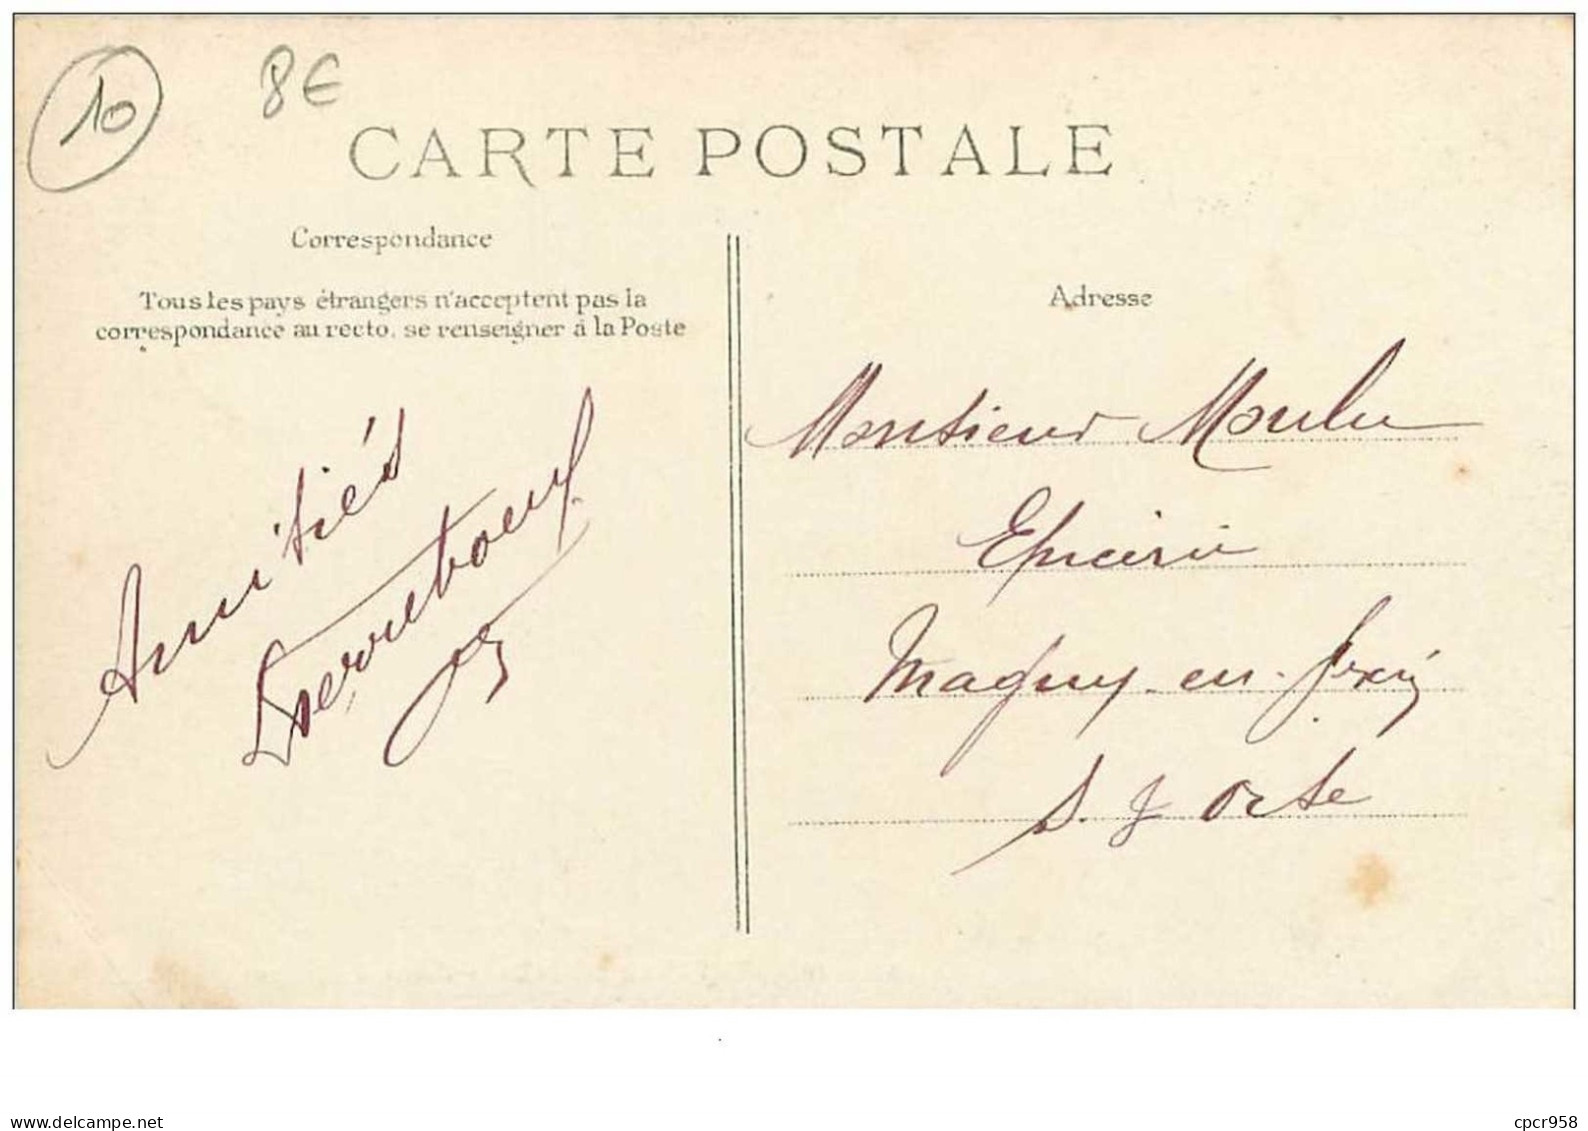 10
8€
CARTE POSTALE
Correspondance
Tous les pays étrangers n'acceptent pas la
correspondance au recto, se renseigner à la Poste
Amitiés
Adresse
Monsieur Moulu
Epicerie
Magny-en-Vexin
S. & Oise
www.delcampe.net
cpcr958